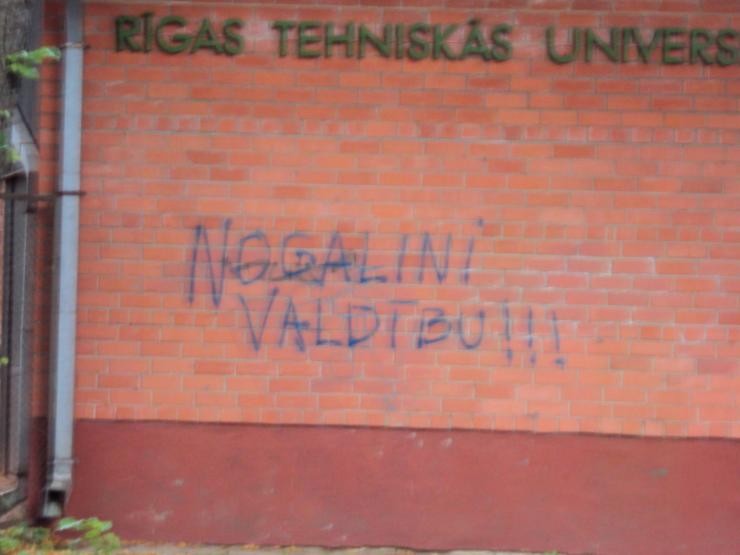 RĪGAS TEHNISKĀS UNIVERS
NOGALINI
VALDĪBU!!!